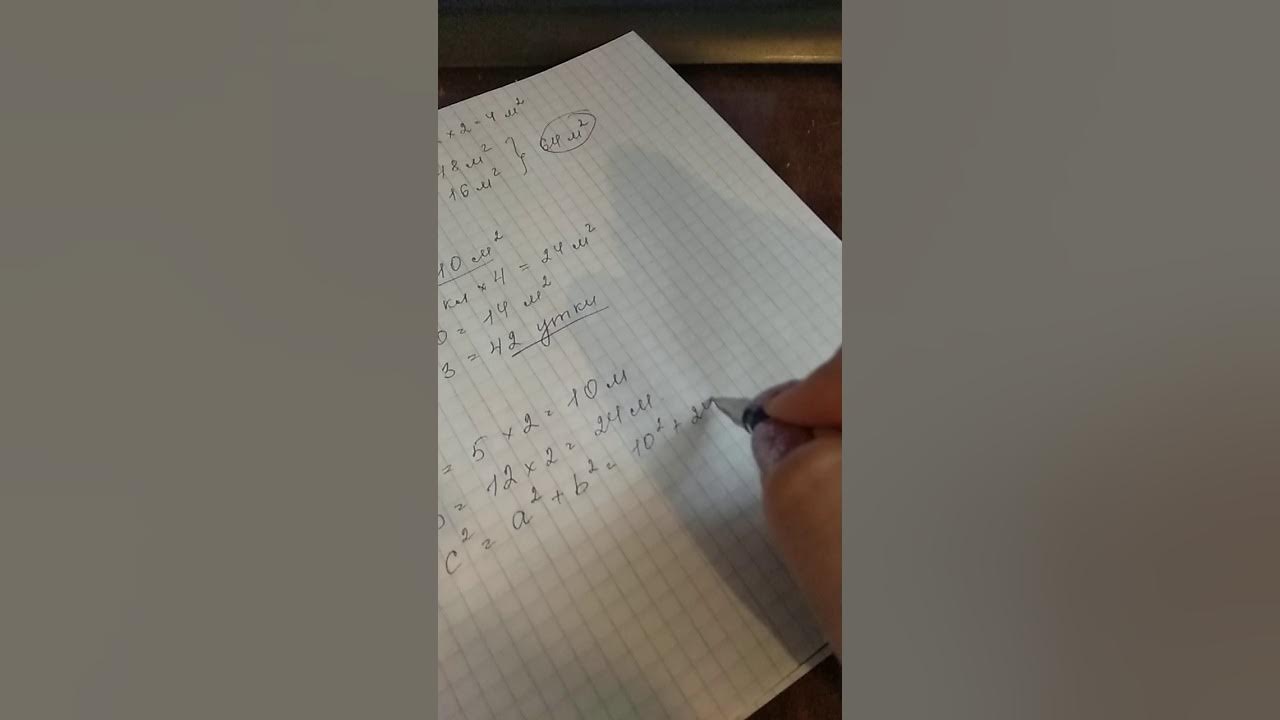 × 2 = 4 м²
48 м² } 64 м²
16 м²
10 м²
кл × 4 = 24 м²
0 = 14 м²
3 = 42 утки
= 5 × 2 = 10 м
= 12 × 2 = 24 м
c² = a² + b² = 10² + 24